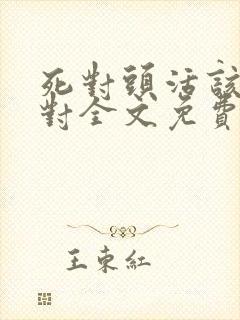 死對頭活該
對全文免費
王東紅